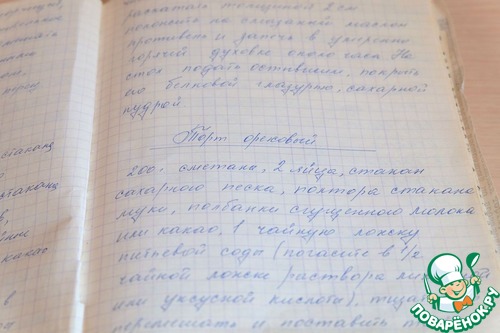 раскатать толщиной 2 см
положить на смазанный маслом
противень и запечь в умеренно
горячей духовке около часа. На
стол подать остывшим, покрыть
его белковой глазурью, сахарной
пудрой.
Торт ореховый
200 г сметаны, 2 яйца, стакан
сахарного песка, полтора стакана
муки, полбанки сгущенного молока
или какао, 1 чайную ложку
питьевой соды (погасить в 1/2
чайной ложке раствора
или уксусной кислоты),
перемешать и поставить
стакана
стаканц
какао
в
ПОВАРЁНОК.РУ